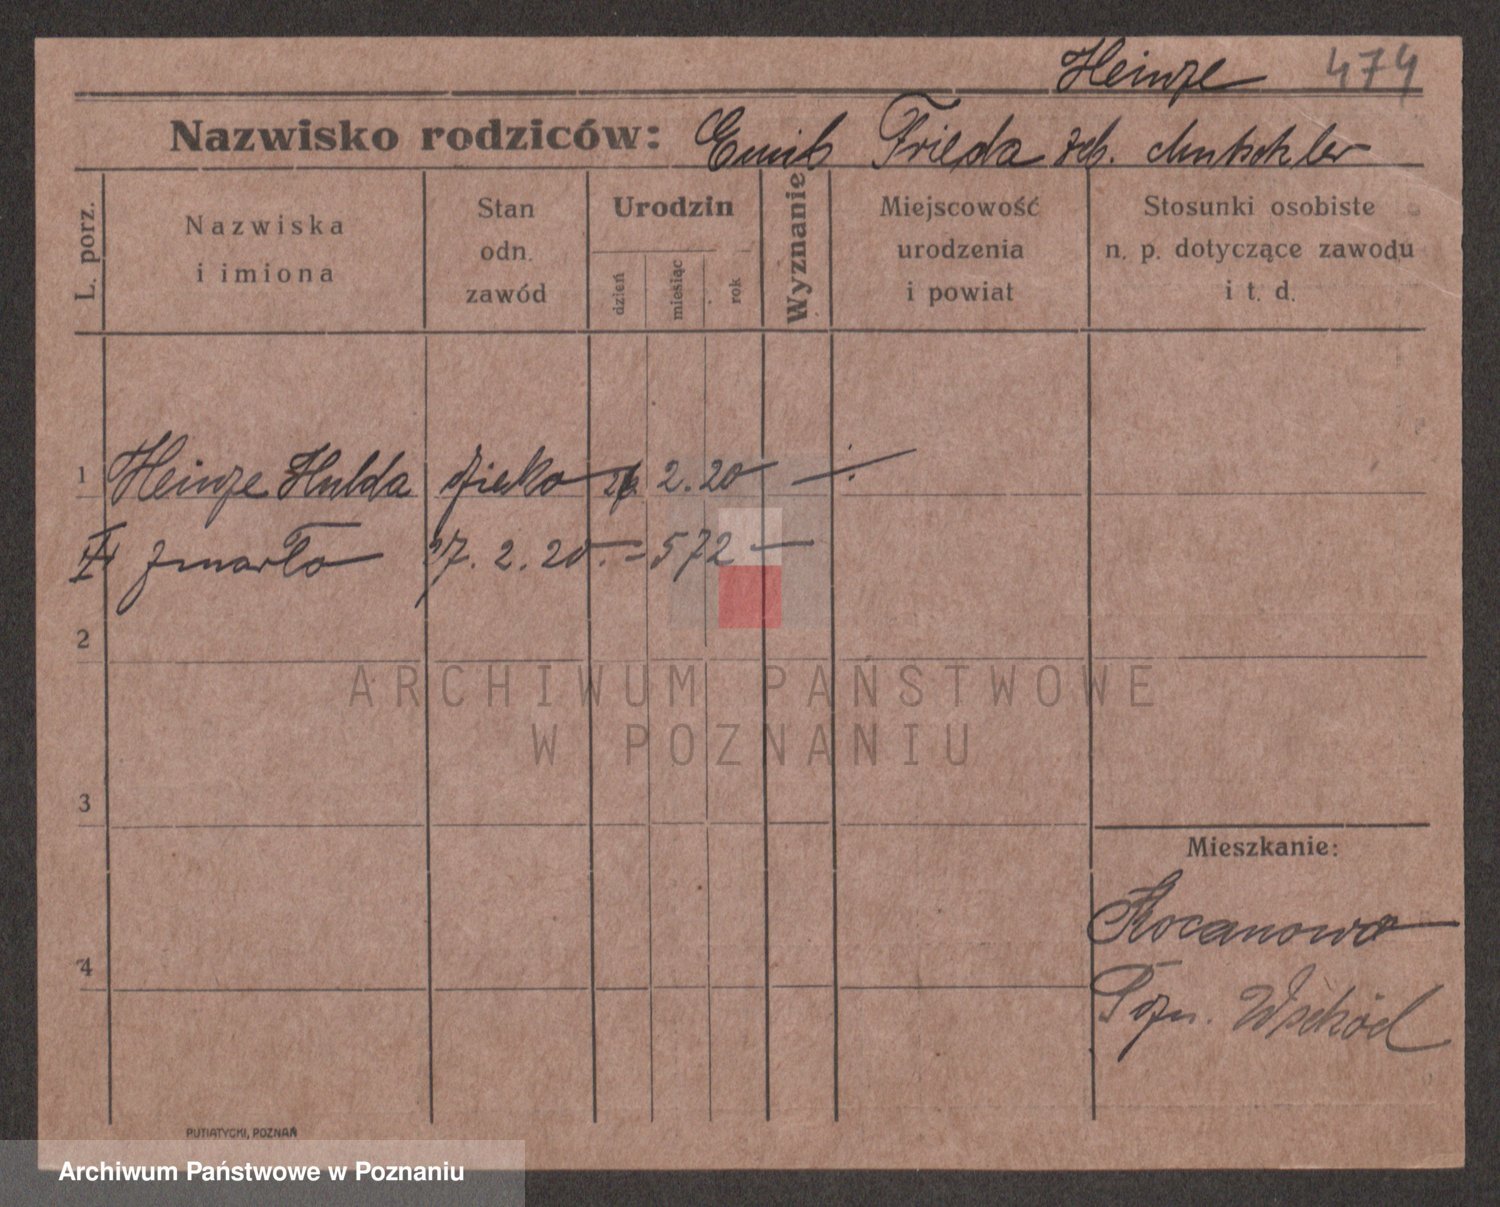 Heinze 474
Nazwisko rodziców: Emil Frieda geb. Mutschler
L. porz.
Nazwiska
i imiona
Stan
odn.
zawód
Urodzin
dzień
miesiąc
rok
Wyznanie
Miejscowość
urodzenia
i powiat
Stosunki osobiste
n. p. dotyczące zawodu
i t. d.
1 Heinze Hulda 2.20
zmarło 2.20. = 572 —
2
3
4
Mieszkanie:
Kocanowo
Pozn. Wschód
PUTIATYCKI, POZNAŃ
ARCHIWUM PAŃSTWOWE
W POZNANIU
Archiwum Państwowe w Poznaniu